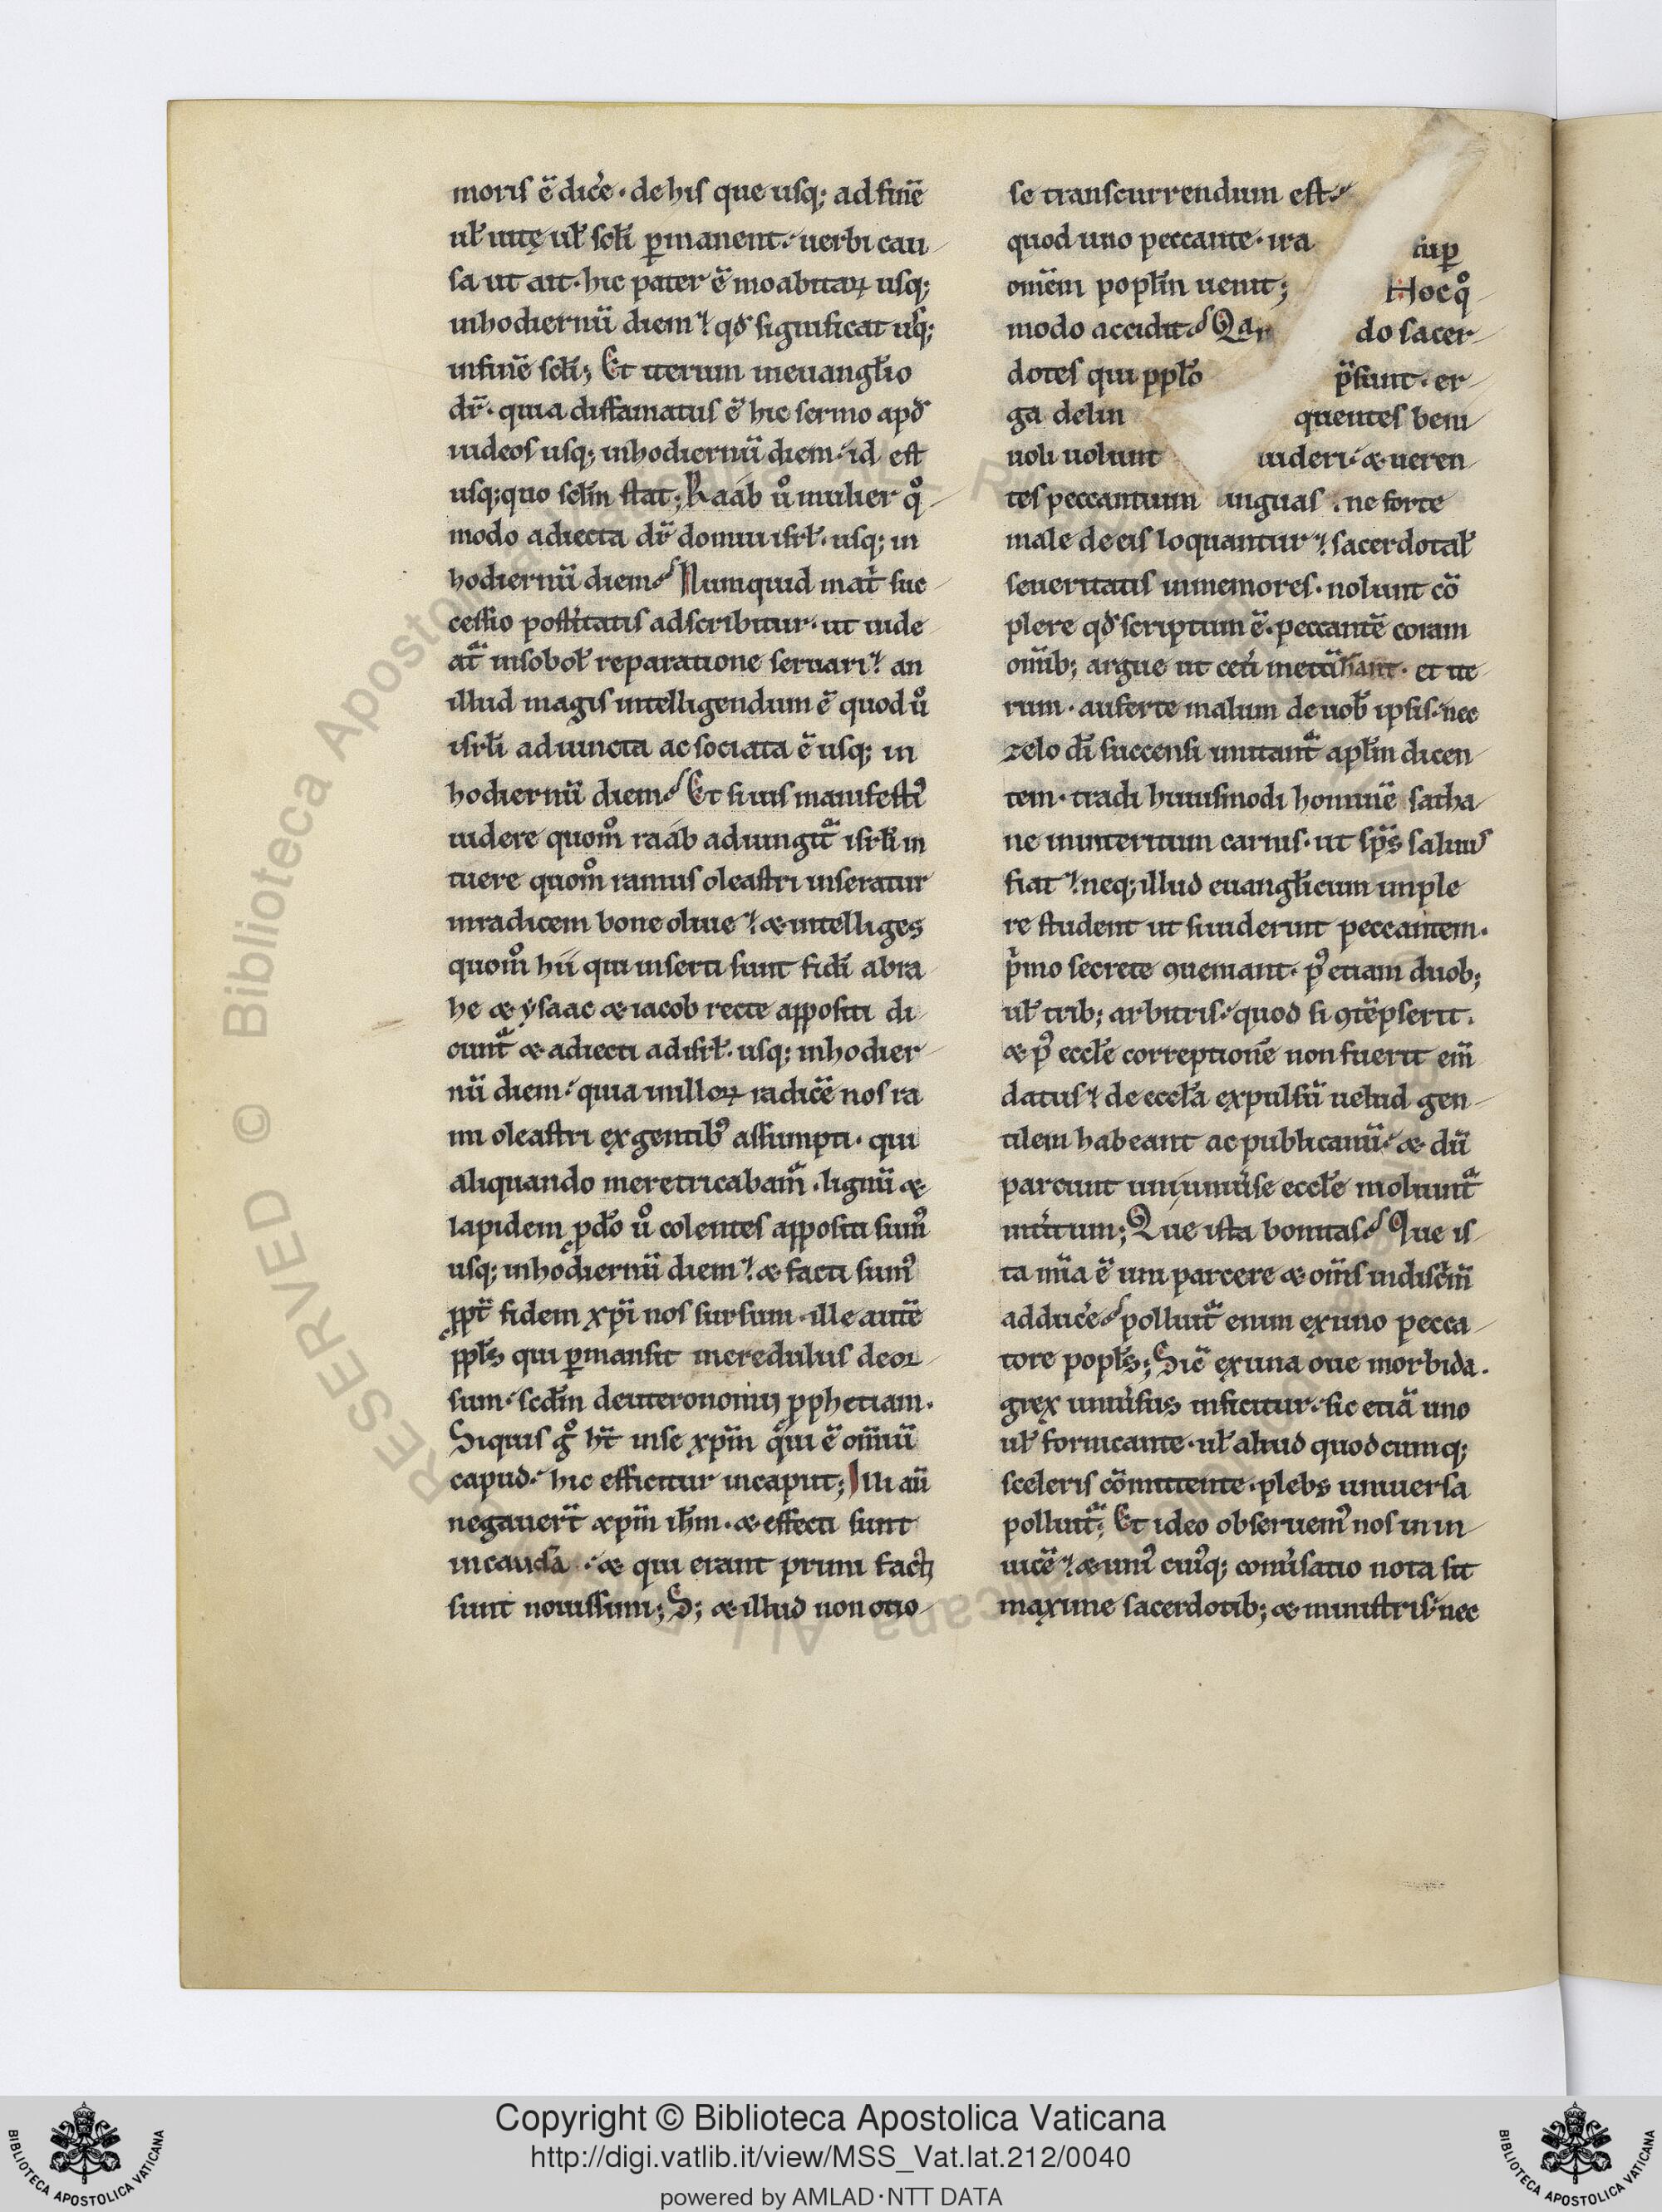 moris ē dic̄e · de his que usq; ad finē
uł uitę uł scłi ꝑmanent. uerbi cau
sa ut ait · hic pater ē moabitaꝝ usq;
inhodiernū diem qđ significat usq;
infinē scłi; Et iterum ineuangłio
dr̄ · quia diffamatus ē hic sermo apđ
iudeos usq; inhodiernū diem id est
usq; quo scłm stat; Raab ůo mulier qͦ
modo adiecta dr̄ domui isrł · usq; in
hodiernū diem Numquid mat̄ suc
cessio post̄itatis adscribitur · ut iude
at̄ insoboł reparatione seruari an
illud magis intelligendum ē quod uͦ
isrłi adiuncta ac sociata ē usq; in
hodiernū diem Et si uis manifesti᷒
uidere quom̊ raab adiungit̄ isrłi in
tuere quom̊ ramus oleastri inseratur
inradicem bone oliue & intelliges
quom̊ hii qui inserti sunt fidī abra
he & ysaac & iacob recte appositi di
cunt̄ & adiecti adisrł · usq; inhodier
nū diem quia inilloꝝ radicē nos ra
mi oleastri exgentib᷒ assumpti · qui
aliquando meretricabam̄ · lignū &
lapidem ꝓ dō uͦ colentes appositi sum᷒
usq; inhodiernū diem & facti sum᷒
ꝓpt̄ fidem xp̄i nos sursum · ille autē
ppłs qui ꝑmansit incredulus deor
sum · scđm deuteronomii ꝓphetiam ·
Siquis gͦ ht̄ inse xp̄m qui ē omniū
capud · hic efficitur incaput; Illi aū
negauert̄ xp̄m ih̄m · & effecti sunt
incauda · & qui erant primi facti
sunt nouissimi; S; & illud non otio
se transcurrendum est
quod uno peccante · ira sup̄
omēm popłm uenit; Hoc qͦ
modo accidit Qan do sacer
dotes qui ppło p̄sunt · er
ga delin quentes beni
uoli uolunt uideri & ueren
tes peccantium inguas · ne forte
male de eis loquantur sacerdotał
seueritatis inmemores · nolunt cō
plere qđ scriptum ē · peccantē coram
omīb; argue ut cet̄i metū hant · et ite
rum · auferte malum de uob̄ ipsis nec
zelo dī succensi imitant̄ apłm dicen
tem · tradi huiusmodi hominē satha
ne ininteritum carnis · ut sp̄s saluus
fiat neq; illud euangłicum imple
re student ut siuiderint peccantem ·
p̄mo secrete ꝯueniant · p᷒ etiam duob;
uł trib; arbitris quod si ꝯtēpserit ·
& p᷒ eccłe correptionē non fuerit em̄
datus de eccła expulsū uelud gen
tilem habeant ac publicanū & dū
parcunt uni uniūse eccłe moliunt̄
int̄itum; Que ista bonitas Que is
ta mīa ē uni parcere & om̄s indisc̄m̄
adduc̄e polluit̄ enim exuno pecca
tore popłs; Sic exuna oue morbida ·
grex uniūsus inficitur sic etiā uno
uł fornicante · uł aliud quodcumq;
sceleris cōmittente · plebs uniuersa
polluit̄; Et ideo obseruem᷒ nos in in
uicē & uni᷒ cui᷒q; conūsatio nota sit
maxime sacerdotib; & ministris nec
Copyright © Biblioteca Apostolica Vaticana
http://digi.vatlib.it/view/MSS_Vat.lat.212/0040
powered by AMLAD·NTT DATA